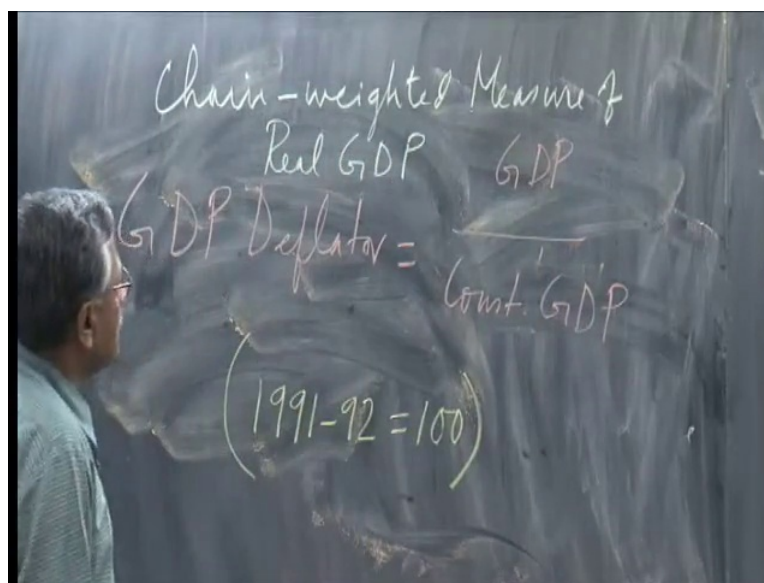 Chain-weighted Measure of
Real GDP
GDP Deflator = GDP / Const. GDP
(1991-92 = 100)